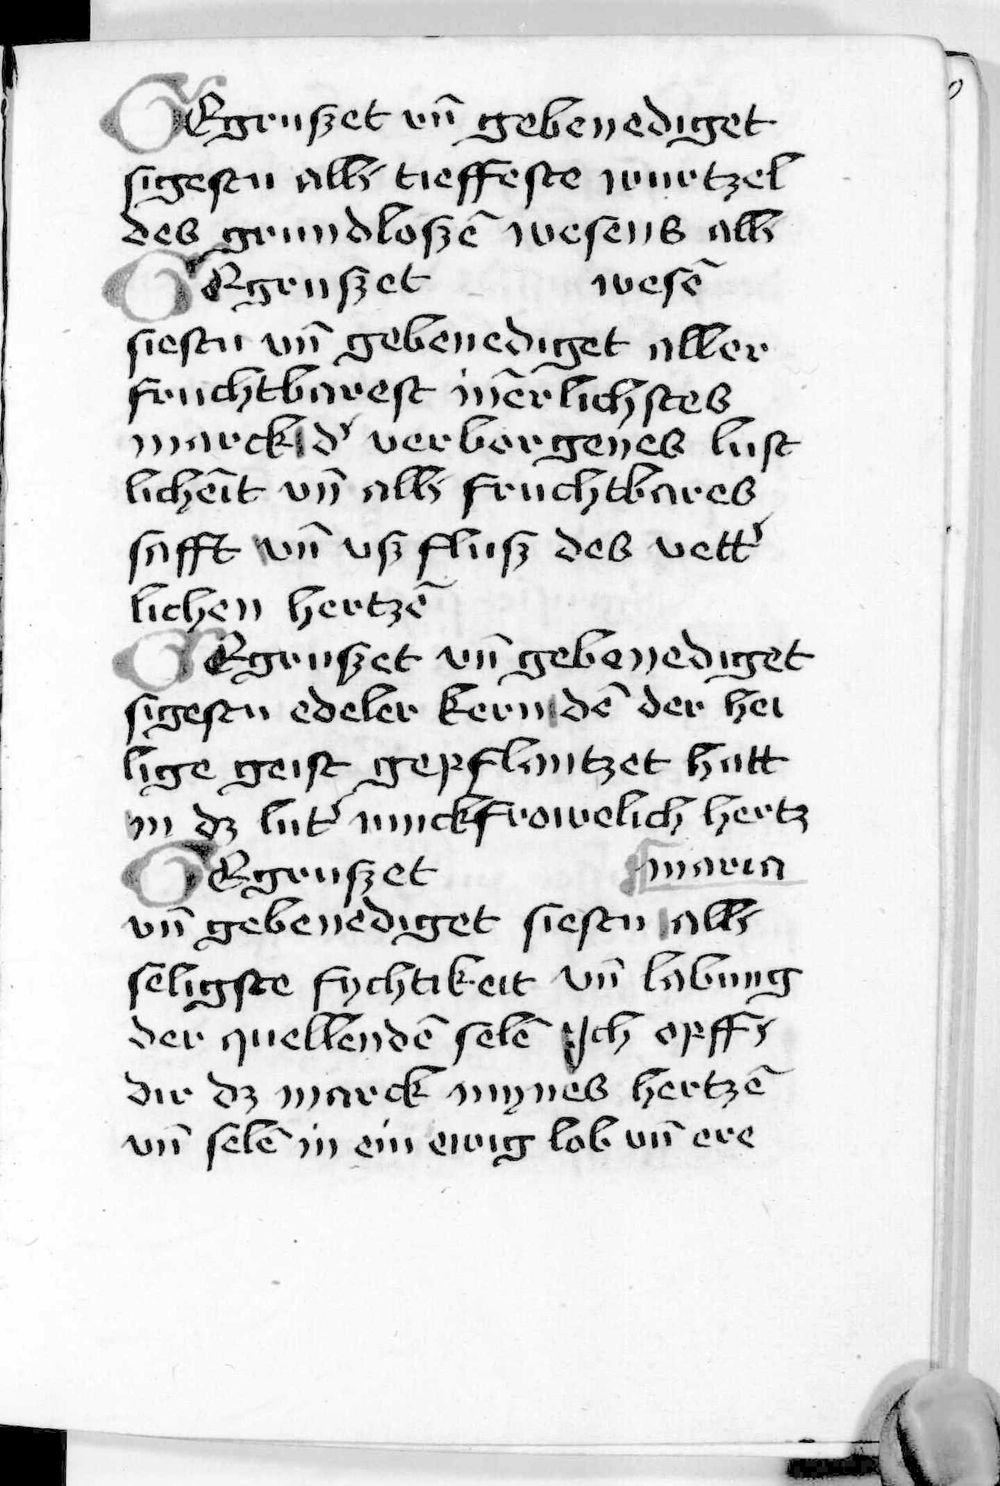 GEgrußet vn̄ gebenediget
sigestu allˢ tieffeste wurtzel
des grundloßē wesens allˢ
GEgrußet wesē
siestu vn̄ gebenediget aller
fruchtbarest iñerlichstes
marck dˀ verborgenes lust
lichēit vn̄ allˢ fruchtbares
safft vn̄ vß fluß des vettˀ
lichen hertzē
GEgrußet vn̄ gebenediget
sigestu edeler kern dē der hei
lige geist gepflantzet hatt
in dz lutˀ iunckfrowelich hertz
GEgrußet maria
vn̄ gebenediget siestu allˢ
seligste fychtikeit vn̄ labung
der quellendē selē Jch opffˀ
dir dz marck mynes hertzē
vn̄ selē in ein ewig lob vn̄ ere